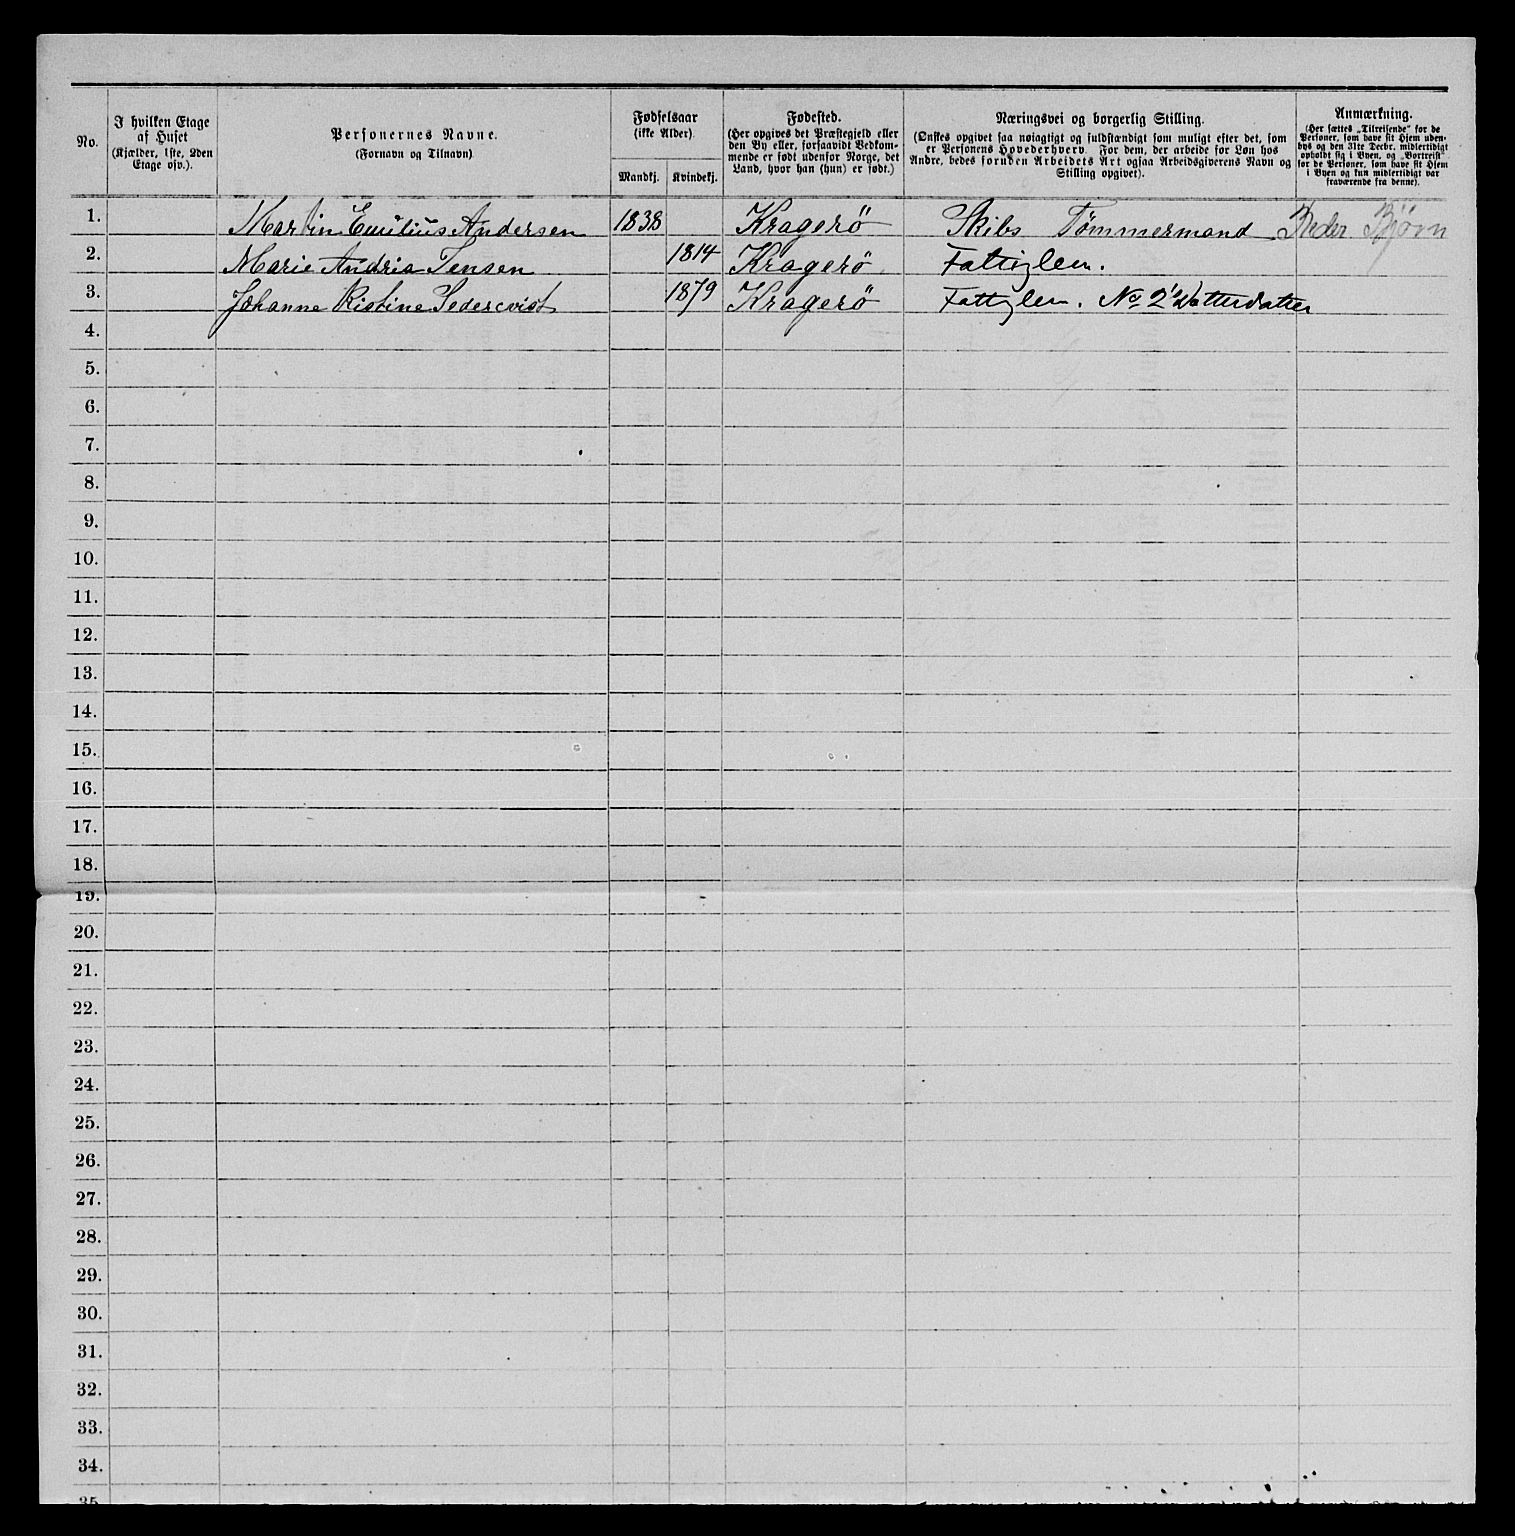 No.
I hvilken Etage
af Huset
(Kjælder, 1ste, 2den
Etage osv.).
Personernes Navne.
(Fornavn og Tilnavn)
Fødselsaar
(ikke Alder).
Mandkj.
Kvindekj.
Fødested.
(Her opgives det Præstegjeld eller
den By eller, forsaavidt Vedkom-
mende er født udenfor Norge, det
Land, hvor han (hun) er født.)
Næringsvei og borgerlig Stilling.
(Ønskes opgivet saa nøiagtigt og fuldstændigt som muligt efter det, som
er Personens Hovederhverv. For dem, der arbeide for Løn hos
Andre, bedes foruden Arbeidets Art ogsaa Arbeidsgiverens Navn og
Stilling opgivet).
Anmærkning.
(Her sættes „Tilreisende" for de
Personer, som have sit Hjem uden-
bys og den 31te Decbr. midlertidigt
opholdt sig i Byen, og „Bortreist"
for de Personer, som have sit Hjem
i Byen og kun midlertidigt var
fraværende fra denne).
1. Martin Emilius Andersen 1838 Kragerö Skibs Tømmermand Reder Björn
2. Marie Andria Jensen 1814 Kragerö Fattiglem.
3. Johanne Kistine Sedercvist 1879 Kragerö Fattglem. No 2' Datterdatter
4.
5.
6.
7.
8.
9.
10.
11.
12.
13.
14.
15.
16.
17.
18.
19.
20.
21.
22.
23.
24.
25.
26.
27.
28.
29.
30.
31.
32.
33.
34.
35